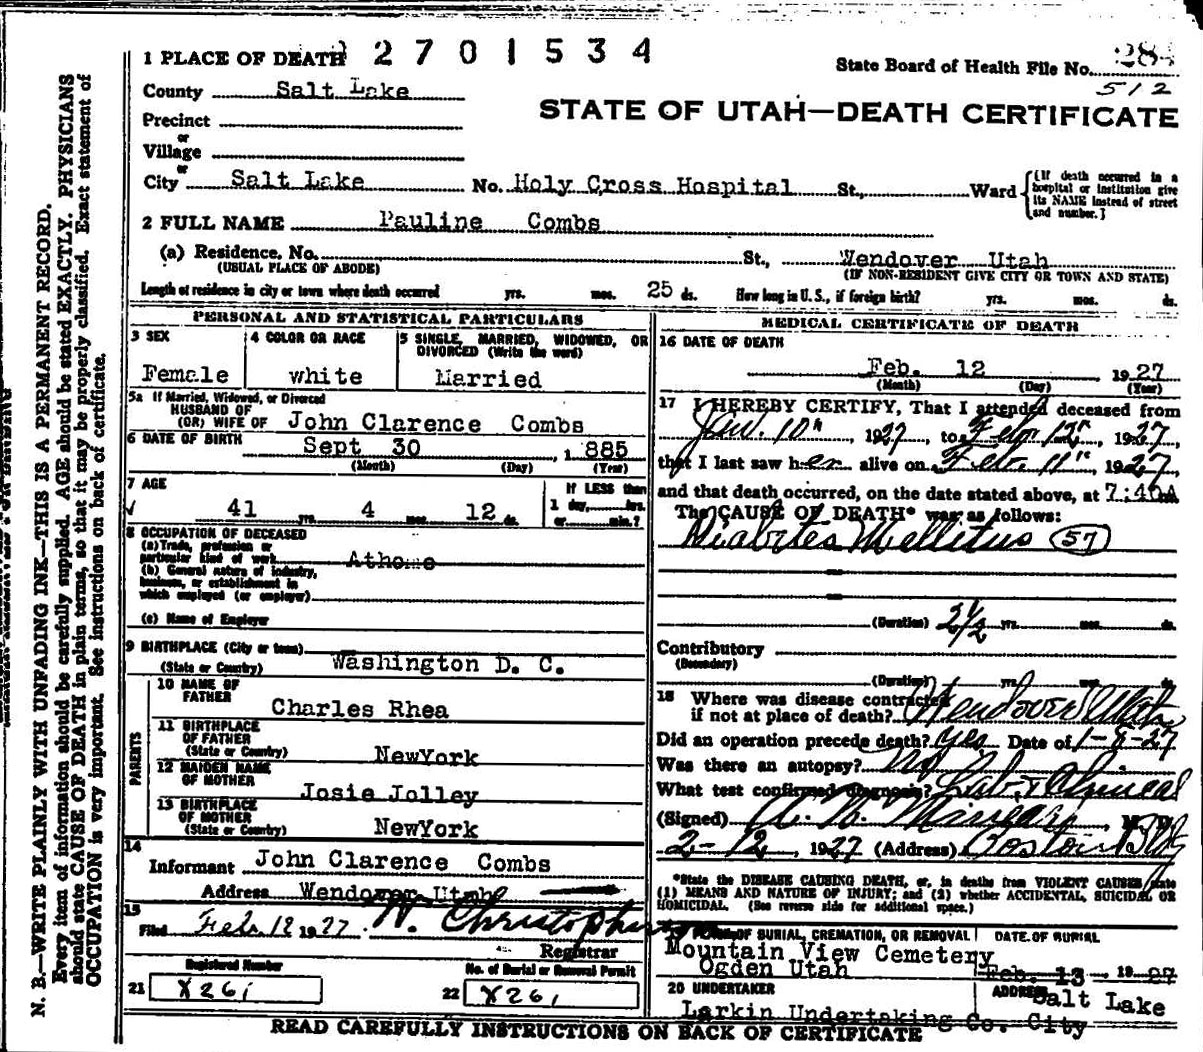 1 PLACE OF DEATH 2701534
State Board of Health File No. 284
512
County Salt Lake
STATE OF UTAH—DEATH CERTIFICATE
Precinct
or
Village
or
City Salt Lake No. Holy Cross Hospital St., Ward {(If death occurred in a hospital or institution give its NAME instead of street and number.)
2 FULL NAME Pauline Combs
(a) Residence, No. St., Wendover Utah
(USUAL PLACE OF ABODE) (IF NON-RESIDENT GIVE CITY OR TOWN AND STATE)
Length of residence in city or town where death occurred yrs. mos. 25 ds. How long in U. S., if foreign birth? yrs. mos. ds.
PERSONAL AND STATISTICAL PARTICULARS
3 SEX Female
4 COLOR OR RACE white
5 SINGLE, MARRIED, WIDOWED, OR DIVORCED (Write the word) Married
5a If Married, Widowed, or Divorced
HUSBAND OF
(OR) WIFE OF John Clarence Combs
6 DATE OF BIRTH Sept 30 1885
(Month) (Day) (Year)
7 AGE If LESS than
41 yrs. 4 mos. 12 ds. 1 day, hrs.
or min.?
8 OCCUPATION OF DECEASED
(a) Trade, profession or
particular kind of work Athome
(b) General nature of industry,
business, or establishment in
which employed (or employer)
(c) Name of Employer
9 BIRTHPLACE (City or town)
(State or Country) Washington D. C.
PARENTS
10 NAME OF
FATHER Charles Rhea
11 BIRTHPLACE
OF FATHER
(State or Country) NewYork
12 MAIDEN NAME
OF MOTHER Josie Jolley
13 BIRTHPLACE
OF MOTHER
(State or Country) NewYork
14
Informant John Clarence Combs
Address Wendover Utah
15
Filed Feb. 12 1927 W. Christopherson
Registrar
Registered Number No. of Burial or Removal Permit
21 X261 22 X261
MEDICAL CERTIFICATE OF DEATH
16 DATE OF DEATH
Feb. 12 1927
(Month) (Day) (Year)
17 I HEREBY CERTIFY, That I attended deceased from
Jan. 10th, 1927, to Feb. 12th, 1927,
that I last saw her alive on Feb. 11th, 1927,
and that death occurred, on the date stated above, at 7:40 A m.
The CAUSE OF DEATH* was as follows:
Diabetes Mellitus (57)
(Duration) 2 1/2 yrs. mos. ds.
Contributory
(Secondary)
(Duration) yrs. mos. ds.
18 Where was disease contracted
if not at place of death? Wendover Utah
Did an operation precede death? yes Date of 1-8-27
Was there an autopsy? no
What test confirmed diagnosis? Lab. & Clinical
(Signed) M. D.
2-12, 1927 (Address) Boston Bldg
*State the DISEASE CAUSING DEATH, or, in deaths from VIOLENT CAUSES state
(1) MEANS AND NATURE OF INJURY; and (2) whether ACCIDENTAL, SUICIDAL OR
HOMICIDAL. (See reverse side for additional space.)
OF BURIAL, CREMATION, OR REMOVAL DATE OF BURIAL
Mountain View Cemetery
Ogden Utah Feb. 13 1927
20 UNDERTAKER ADDRESS Salt Lake
Larkin Undertaking Co. City
READ CAREFULLY INSTRUCTIONS ON BACK OF CERTIFICATE
N. B.—WRITE PLAINLY WITH UNFADING INK—THIS IS A PERMANENT RECORD.
Every item of information should be carefully supplied. AGE should be stated EXACTLY. PHYSICIANS
should state CAUSE OF DEATH in plain terms, so that it may be properly classified. Exact statement of
OCCUPATION is very important. See instructions on back of certificate.